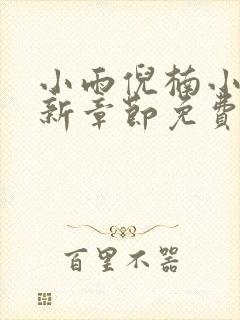 小雨倪楠小
新章節免費
百里不器